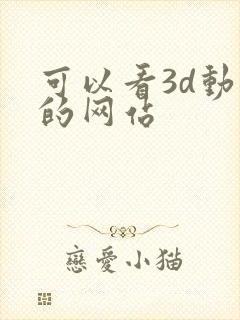 可以看3d動
的网站
戀愛小猫